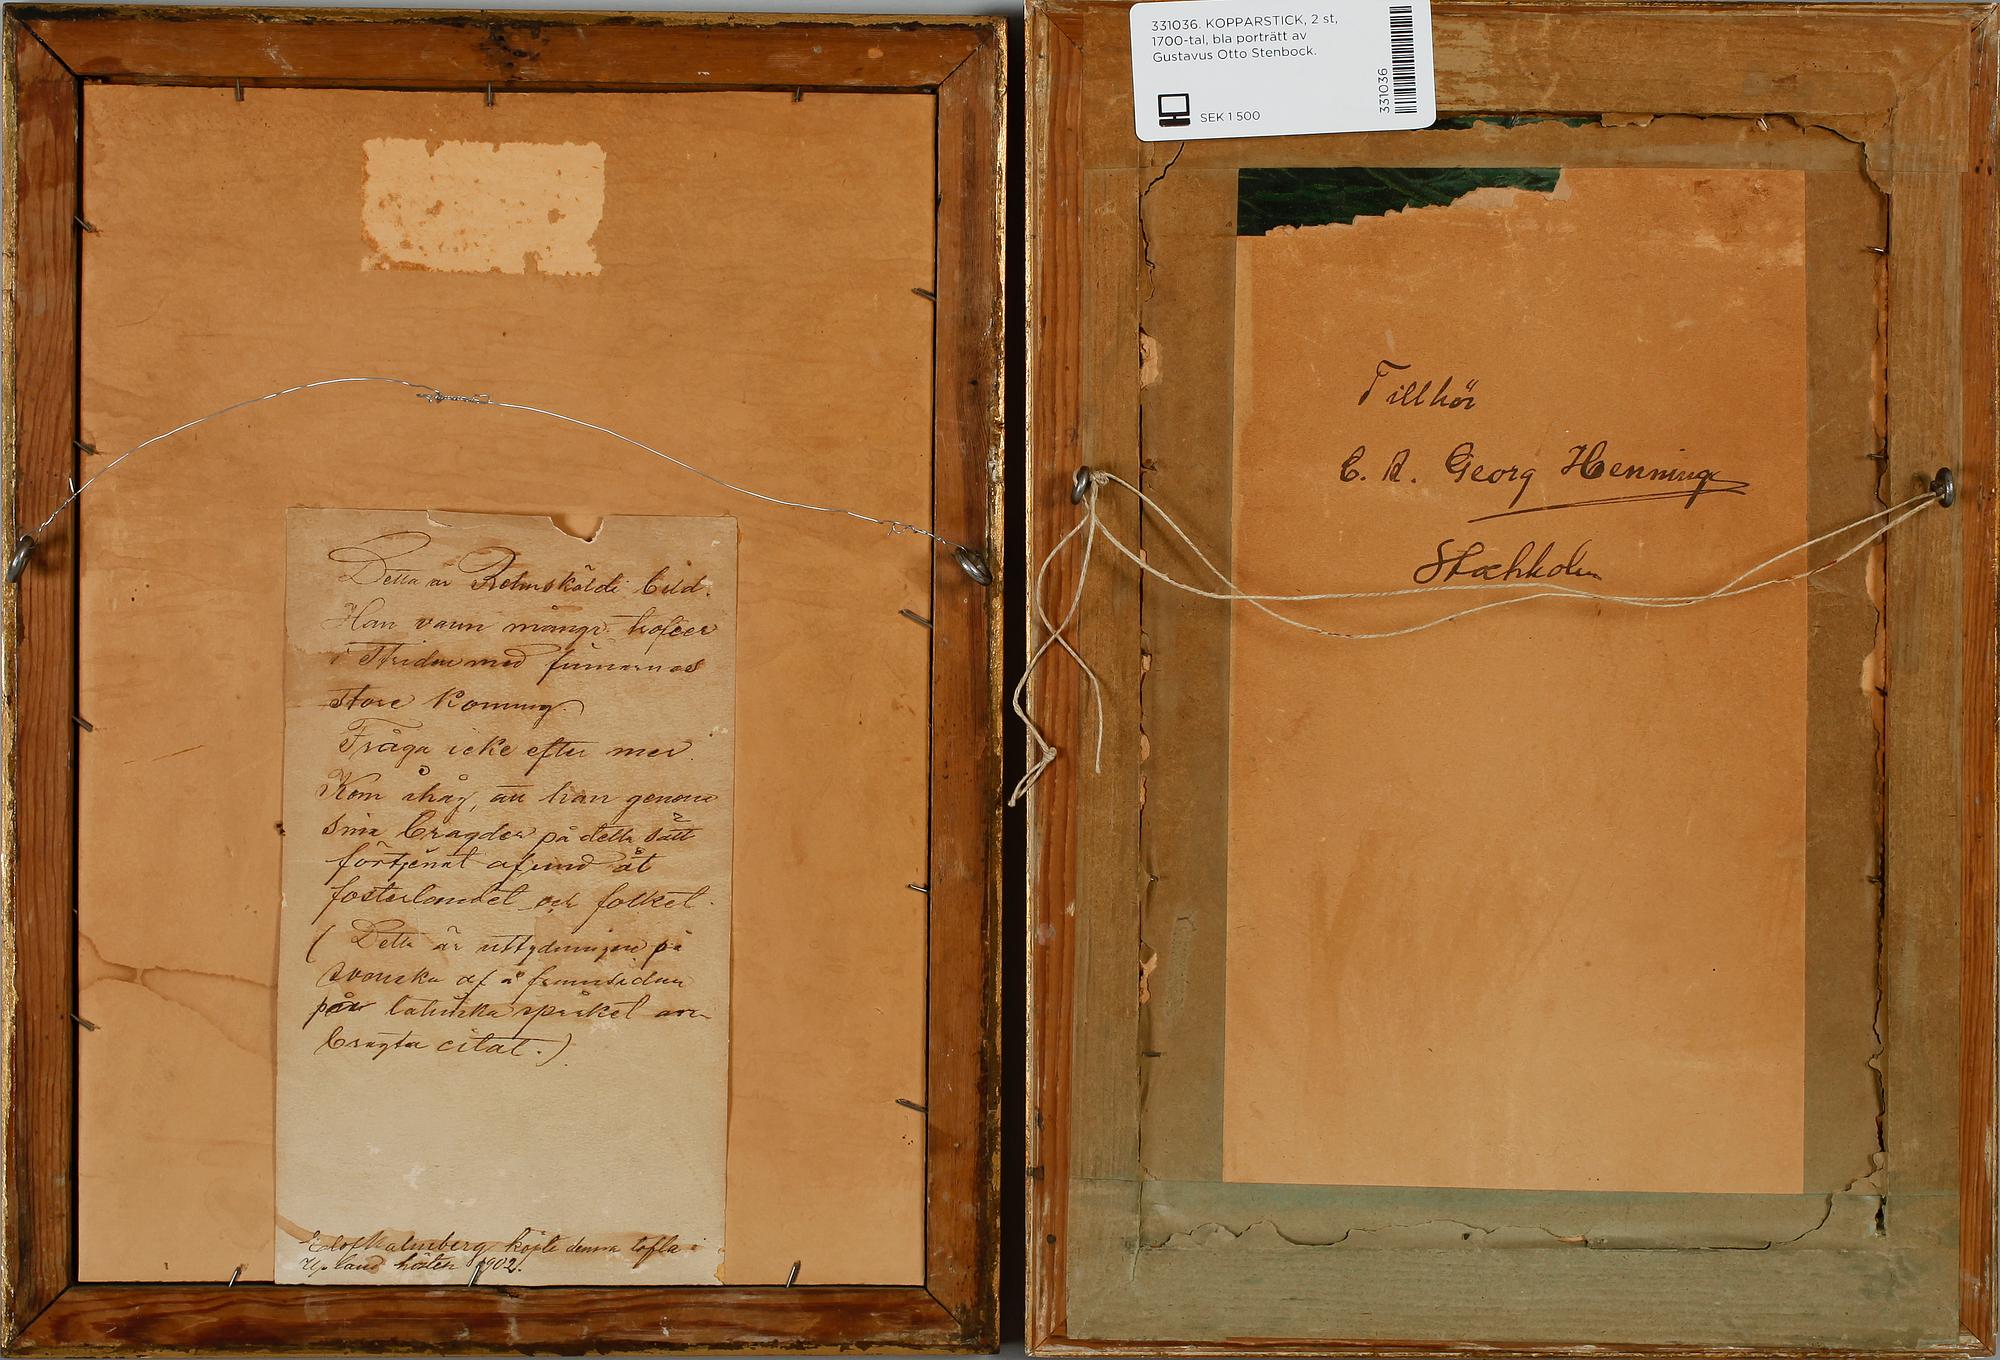 Detta är Rehnskölds bild.
Han vann många
i striden med
store Konung.
Fråga icke efter mer.
Kom ihåg, att han genom
sina bragder på detta sätt
förtjenat afund åt
fosterlandet och folket.
( Detta är uttydningen på
svenska af å framsidan
på latinska språket an-
bragta citat.)
köpte denna tafla i
Upland hösten 1902.
331036. KOPPARSTICK, 2 st,
1700-tal, bla porträtt av
Gustavus Otto Stenbock.
SEK 1 500
331036
Tillhör
C. A. Georg Henning
Stockholm